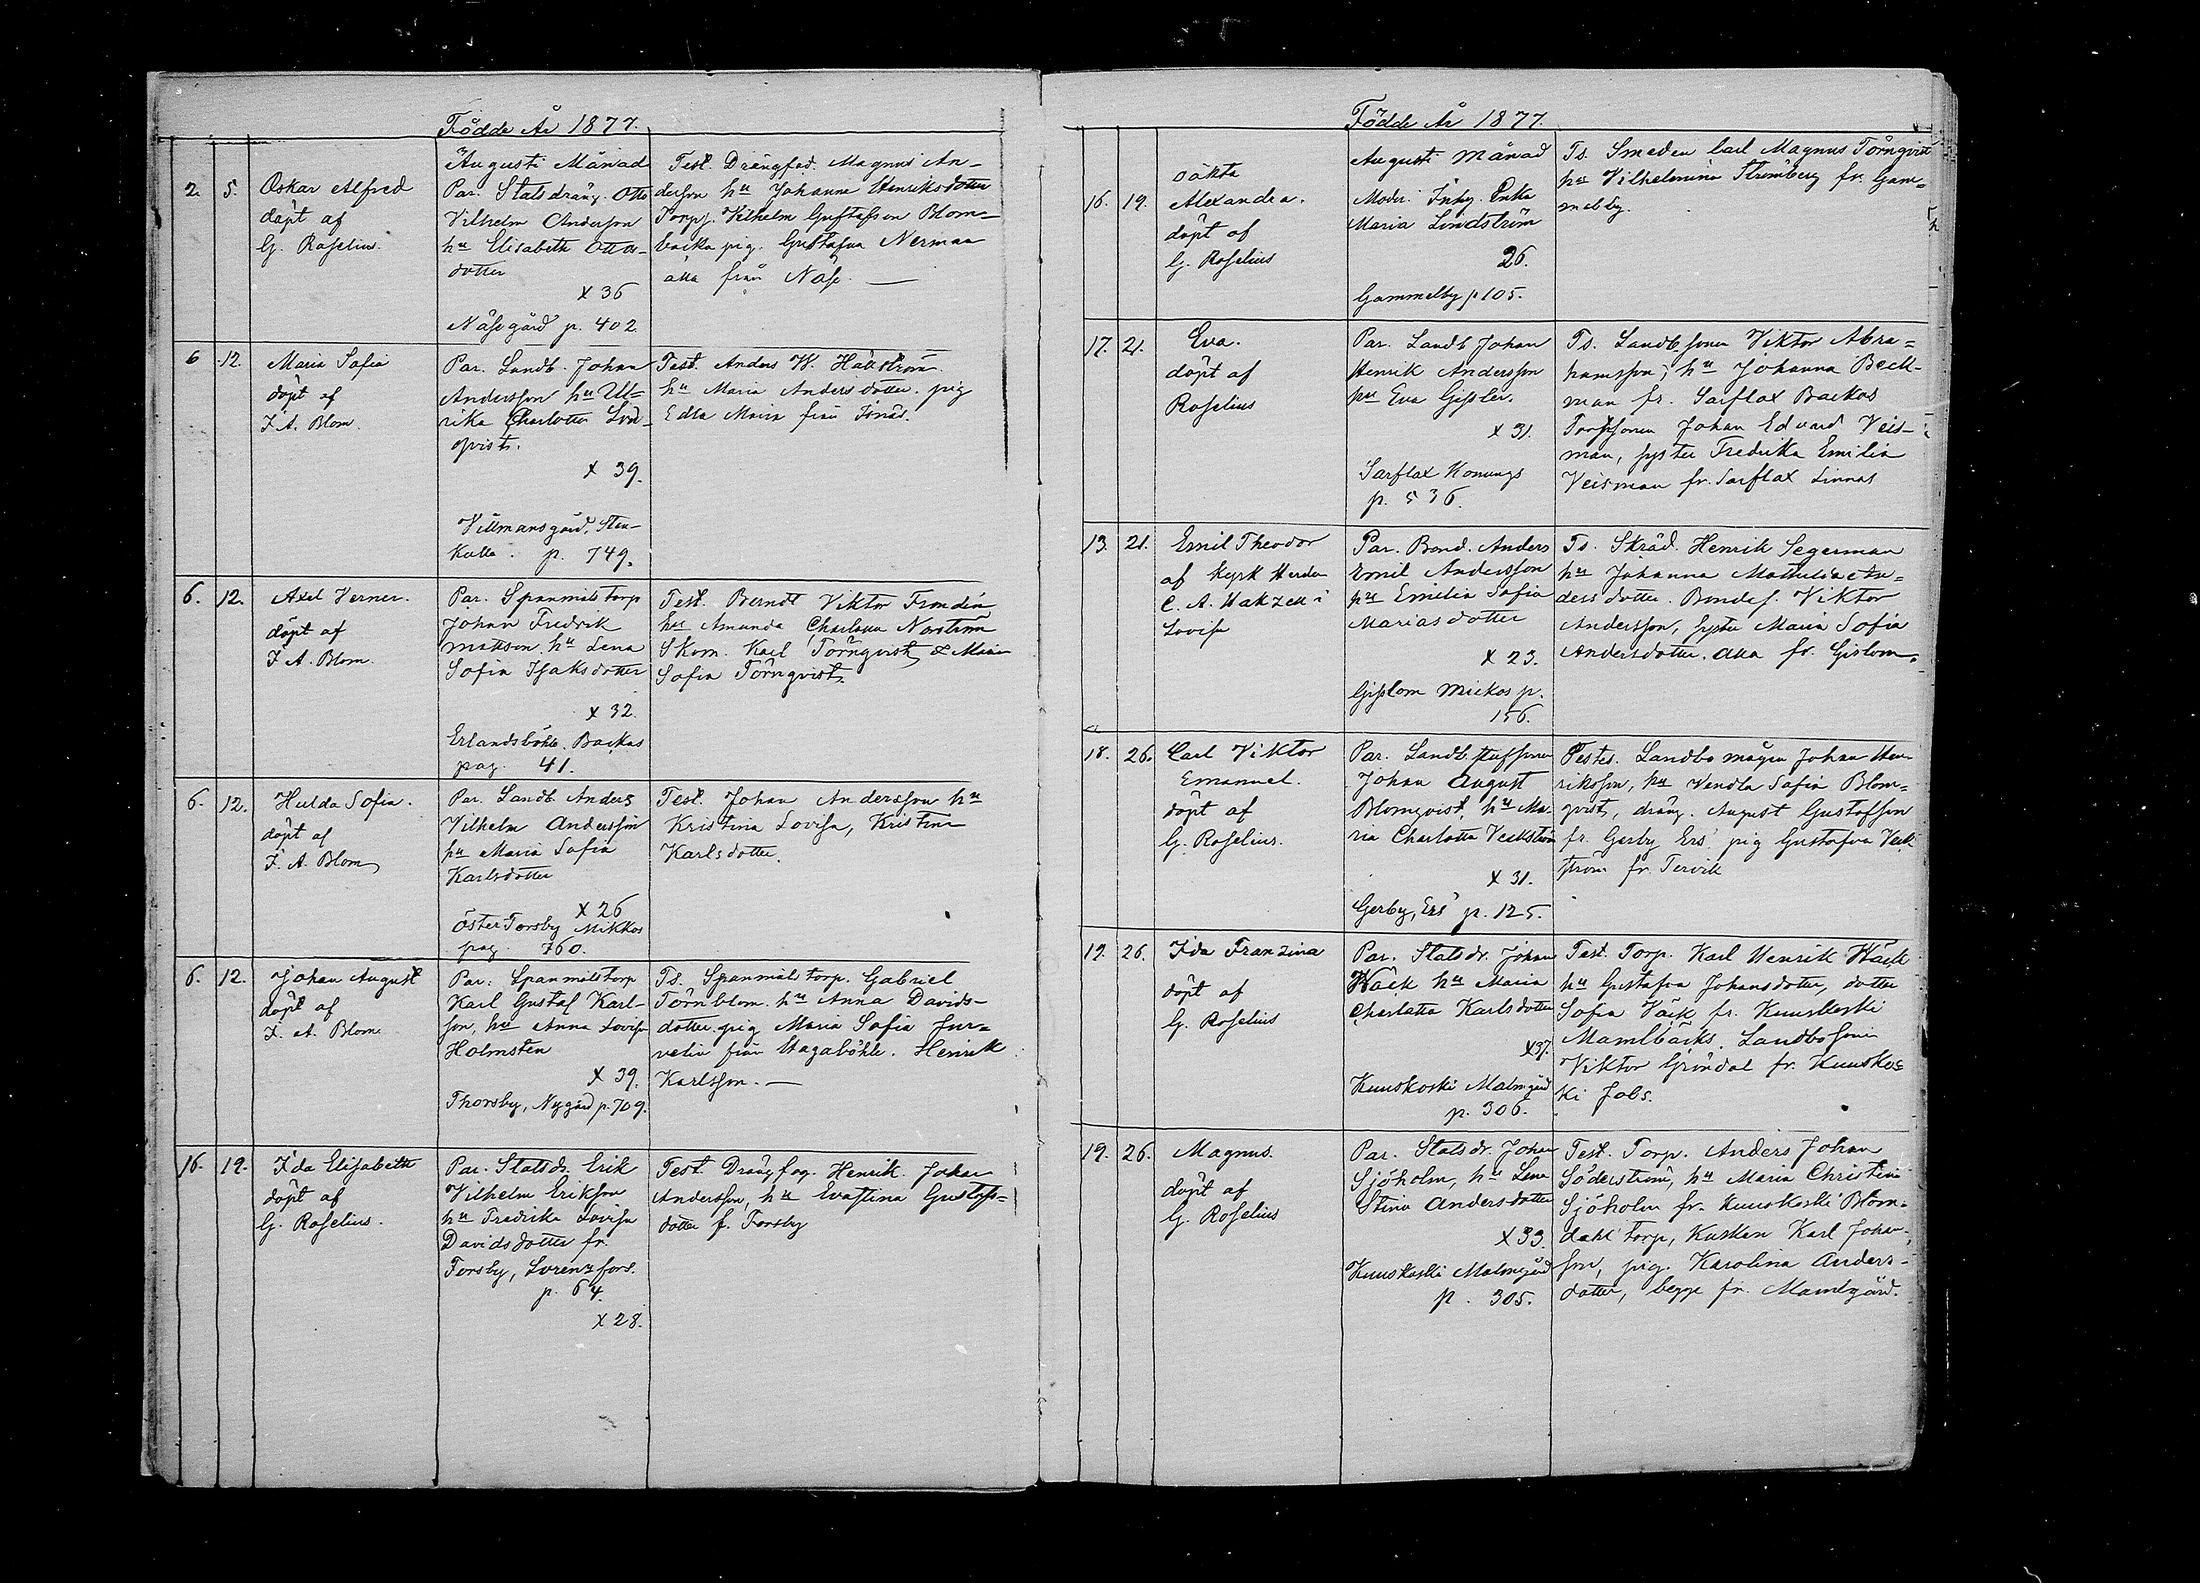 Födde År 1877.
Augusti Månad
2. 5.
Oskar Alfred
döpt af
G. Roselius.
Par. Statsdräng. Otto
Vilhelm Andersson
hu Elisabeth Ottos-
dotter
x 36
Näse gård p. 402.
Test. Drängfad. Magnus An-
dersson hu Johanna Henriksdotter
Torpf. Vilhelm Gustafsson Blom-
backa pig. Gustafva Nerman
alla från Näse. —
6 12.
Maria Sofia
döpt af
F. A. Blom.
Par. Landb. Johan
Andersson hu Ul-
rika Charlotta Lind-
qvist.
x 39.
Villmansgård, Sten-
kulla. p. 749.
Test. Anders W. Hällström
hu Maria Andersdotter. pig
Edla Maria från Isnäs.
6. 12.
Axel Verner.
döpt af
F. A. Blom.
Par. Spanmåls torp
Johan Fredrik
Mattson. hu Lena
Sofia Isaksdotter
x 32.
Erlandsböle. Backas
pag. 41.
Test. Berndt Viktor Frondén
hu Amanda Charlotta Norström
Skom. Karl Törnqvist, & Maria
Sofia Törnqvist.
6. 12.
Hulda Sofia.
döpt af
F. A. Blom
Par. Landb. Anders
Vilhelm Andersson
hu Maria Sofia
Karlsdotter
x 26
Öster Torsby Mikkos
pag. 760.
Test. Johan Andersson hu
Kristina Lovisa, Kristina
Karlsdotter.
6. 12.
Johan August
döpt af
F. A. Blom.
Par. Spanmålstorp
Karl Gustaf Karl-
son, hu Anna Lovisa
Holmsten
x 39.
Thorsby, Nygård p. 709.
Ts. Spanmåls torp. Gabriel
Törnblom. hu Anna Davids-
dotter, pig Maria Sofia Jur-
velin från Hagaböhle. Henrik
Karlsson. —
16. 19.
Ida Elisabeth
döpt af
G. Roselius.
Par. Statsdr. Erik
Vilhelm Erikson
hu Fredrika Lovisa
Davidsdotter fr.
Forsby, Lorenzfors.
p. 64.
x 28.
Test Drängfog. Henrik Johan
Andersson, hu Evastina Gustafs-
dotter f. Forsby
Födde År 1877.
Augusti Månad
16. 19.
oäkta
Alexandra.
döpt af
G. Roselius
Moder. Inhy. Enka
Maria Lindström
26.
Gammelby p 105.
Ts. Smeden Carl Magnus Törnqvist
hu Vilhelmina Strömberg fr. Gam-
melby.
17. 21.
Eva.
döpt af
Roselius
Par. Landb Johan
Henrik Andersson
hu Eva Gissler.
x 31.
Sarflax Konungs
p. 536.
Ts. Landb.sonen Viktor Abra-
hamsson, hu Johanna Beck-
man fr. Sarflax Backas
Torpsonen Johan Edvard Veis-
man, syster Fredrika Emilia
Veisman fr. Sarflax Linnas
13. 21.
Emil Theodor
af Kyrk Herden
C. A. Hakzell i
Lovisa
Par. Bond. Anders
Emil Andersson
hu Emilia Sofia
Mariasdotter
x 23.
Gislom Mickos p.
156.
Ts. Skräd. Henrik Segerman
hu Johanna Mathilda An-
ders dotter. Bondes. Viktor
Andersson, syster Maria Sofia
Andersdotter. alla fr. Gislom.
18. 26.
Carl Viktor
Emanuel.
döpt af
G. Roselius.
Par. Landb. stufsonen
Johan August
Blomqvist, hu Ma-
ria Charlotta Veckström
x 31.
Gerby, Ers p. 125.
Testes. Landbo mågen Johan Hen-
riksson, hu Vendla Sofia Blom-
qvist, dräng. August Gustafsson
fr. Gerby Ers pig Gustafva Veck
ström fr. Tervik
19. 26.
Ida Franzina
döpt af
G. Roselius
Par. Statsdr. Johan
Wäck hu Maria
Charlotta Karlsdotter
x 37.
Kuuskoski Malmgård
p. 306.
Test. Torp. Karl Henrik Wäck
hu Gustafva Johansdotter, dotter
Sofia Väck fr. Kuuskoski
Mamlbäcks. Landbosonen
Viktor Gröndal fr. Kuusko-
ki Jobs.
19. 26.
Magnus.
döpt af
G. Roselius
Par. Statsdr. Johan
Sjöholm, hu Lena
Stina Andersdotter
x 33.
Kuuskoski Malmgård
p. 305.
Test. Torp. Anders Johan
Söderström, hu Maria Christina
Sjöholm fr. Kuuskoski Blom-
dahl torp, Kusken Karl Johan-
son, pig. Karolina Anders-
dotter, begge fr. Mamlgård.